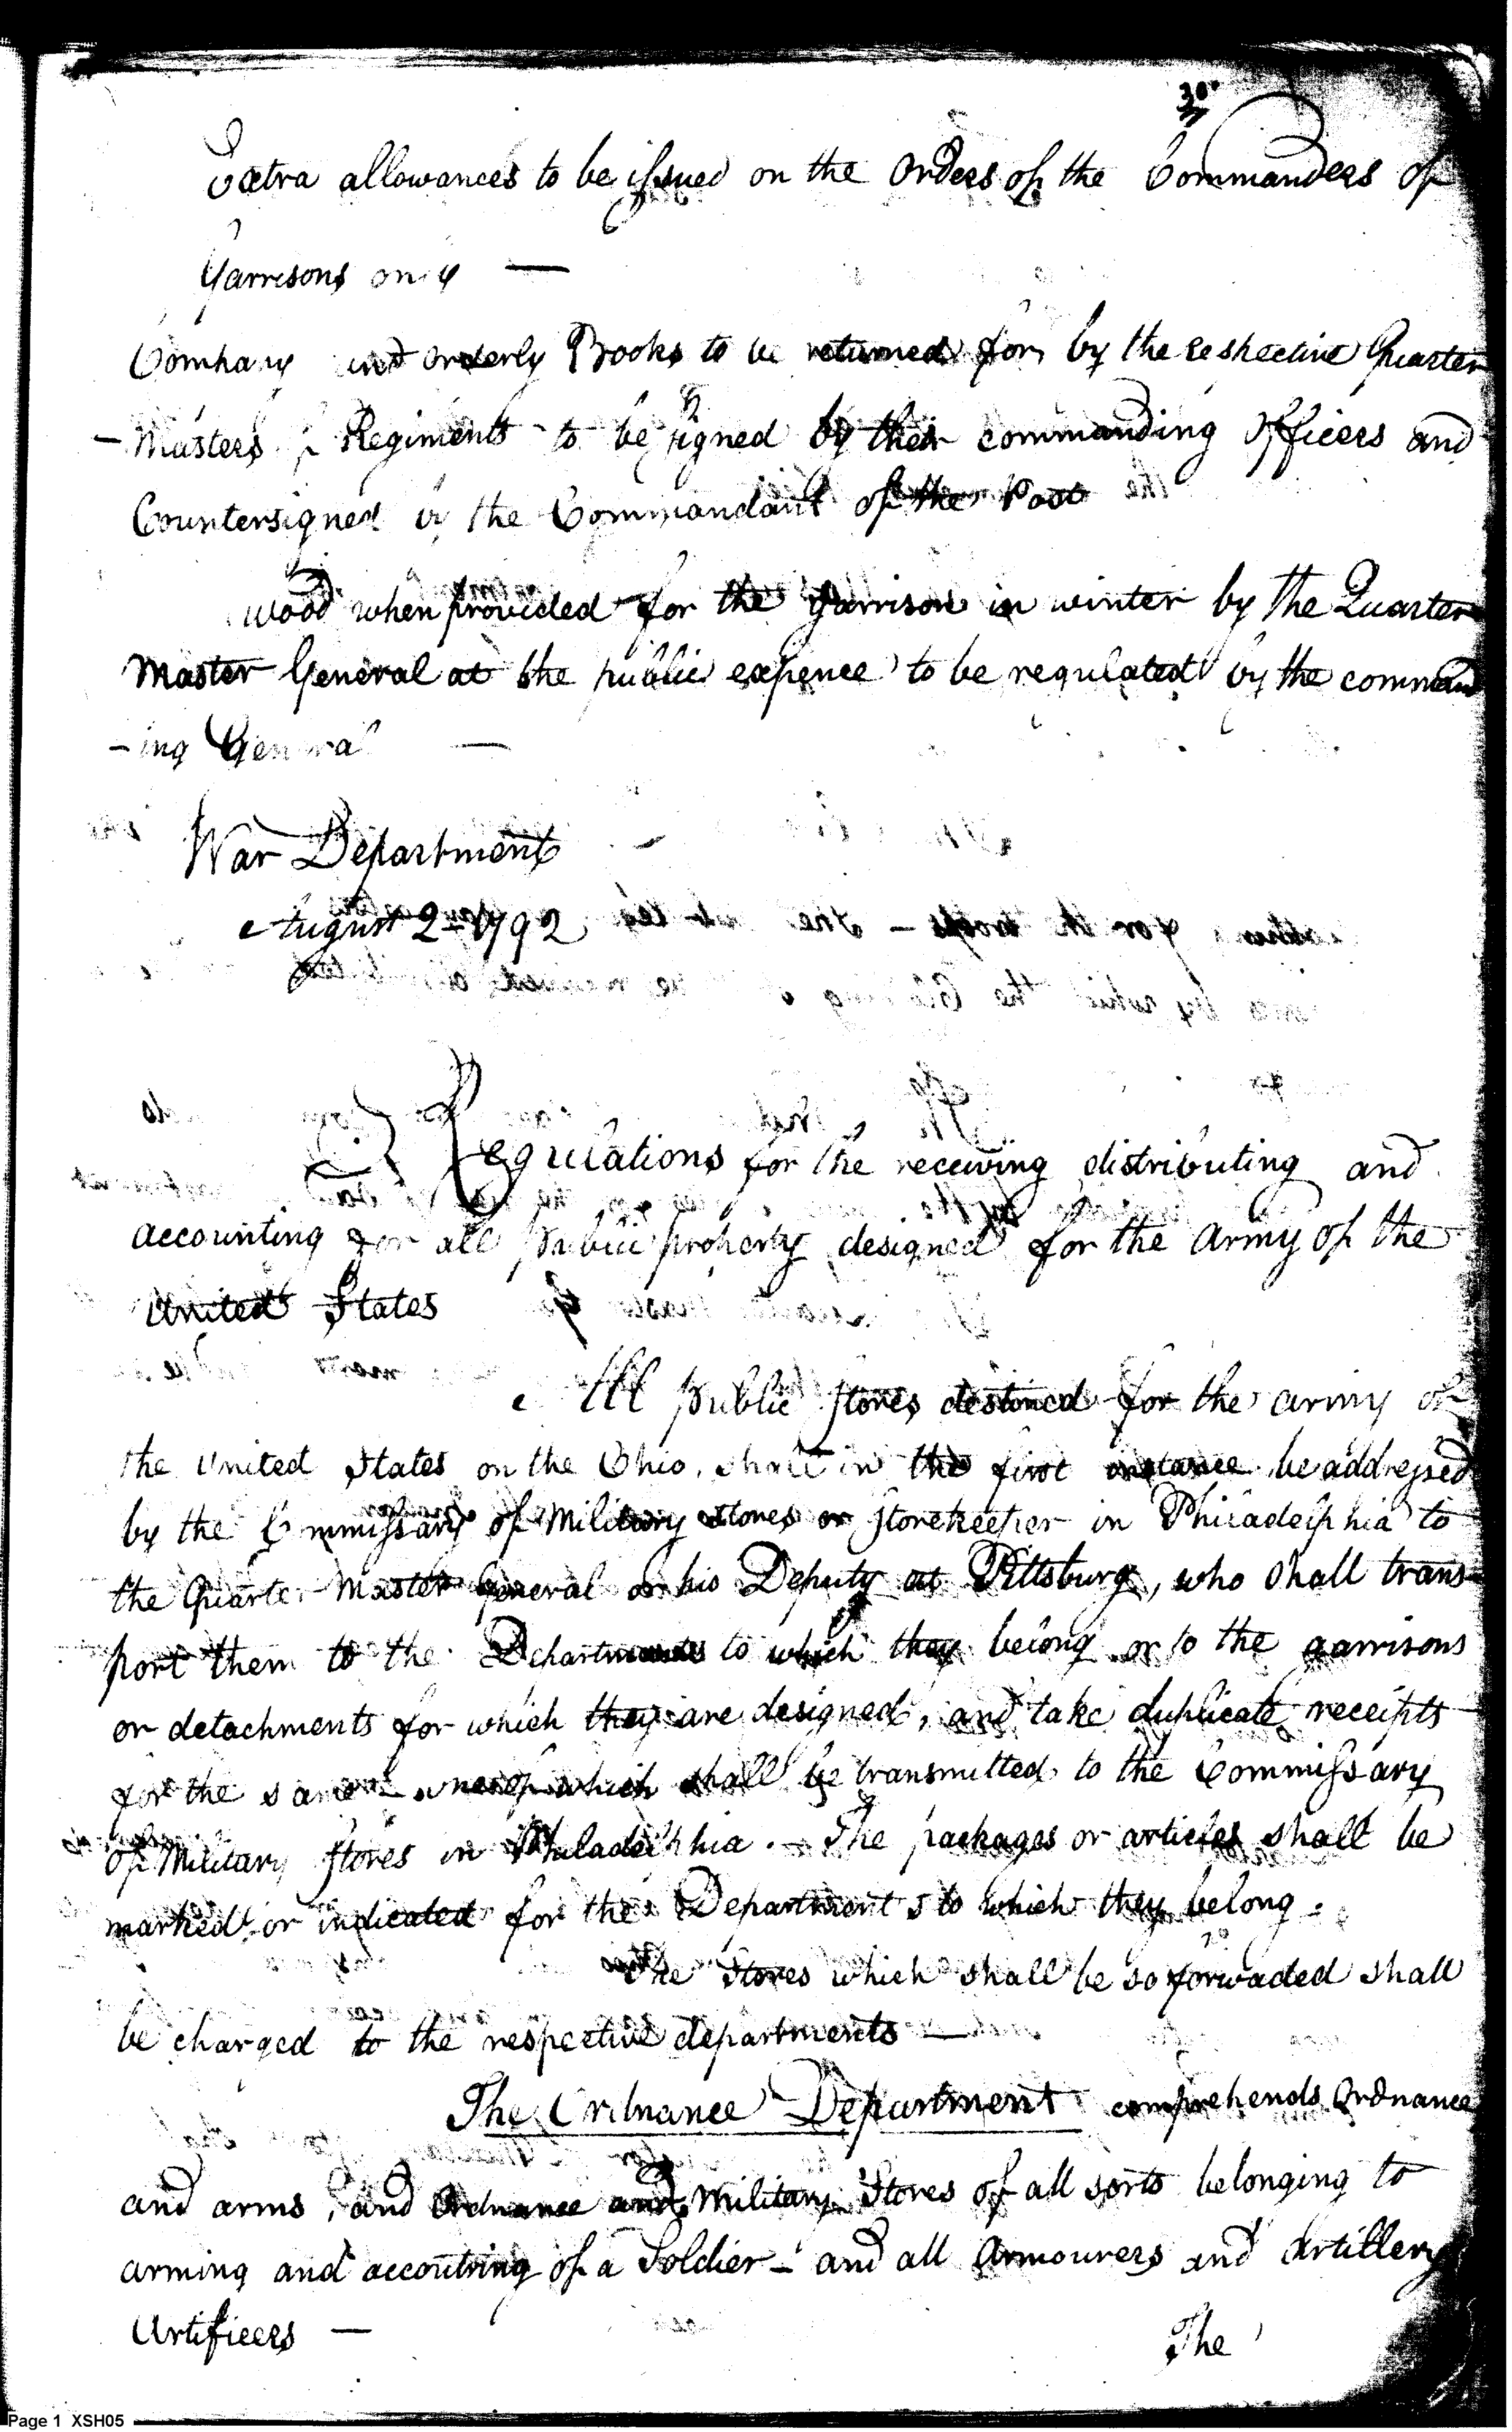 Extra allowances to be issued on the Orders of the Commanders of
Garrisons only —
Company and orderly Books to be returned for, by the respective Quarter
- Masters of Regiments to be signed by their commanding Officers and
Countersigned by the Commandant of the Post
wood when provided for the Garrison in winter by the Quarter
Master General at the public expence to be regulated by the command
- ing General —
War Department
August 2nd 1792
Regulations for the receiving distributing and
accounting for all public property designed for the Army of the
United States
All public stores destined for the army of
the United States on the Ohio, shall in the first instance be addressed
by the Commissary of Military stores or storekeeper in Philadelphia to
the Quarter Master General or his Deputy at Pittsburg, who shall trans-
port them to the Departments to which they belong or to the garrisons
or detachments for which they are designed, and take duplicate receipts
for the same - which shall be transmitted to the Commissary
of Military stores in Philadelphia. — The packages or articles shall be
marked or indicated for the Departments to which they belong.
The Stores which shall be so forwaded shall
be charged to the respective departments —
The Ordnance Department comprehends Ordnance
and arms, and Ordnance and Military Stores of all sorts belonging to
arming and accoutring of a Soldier - and all Armourers and Artillery
Artificers —
The
Page 1 XSH05